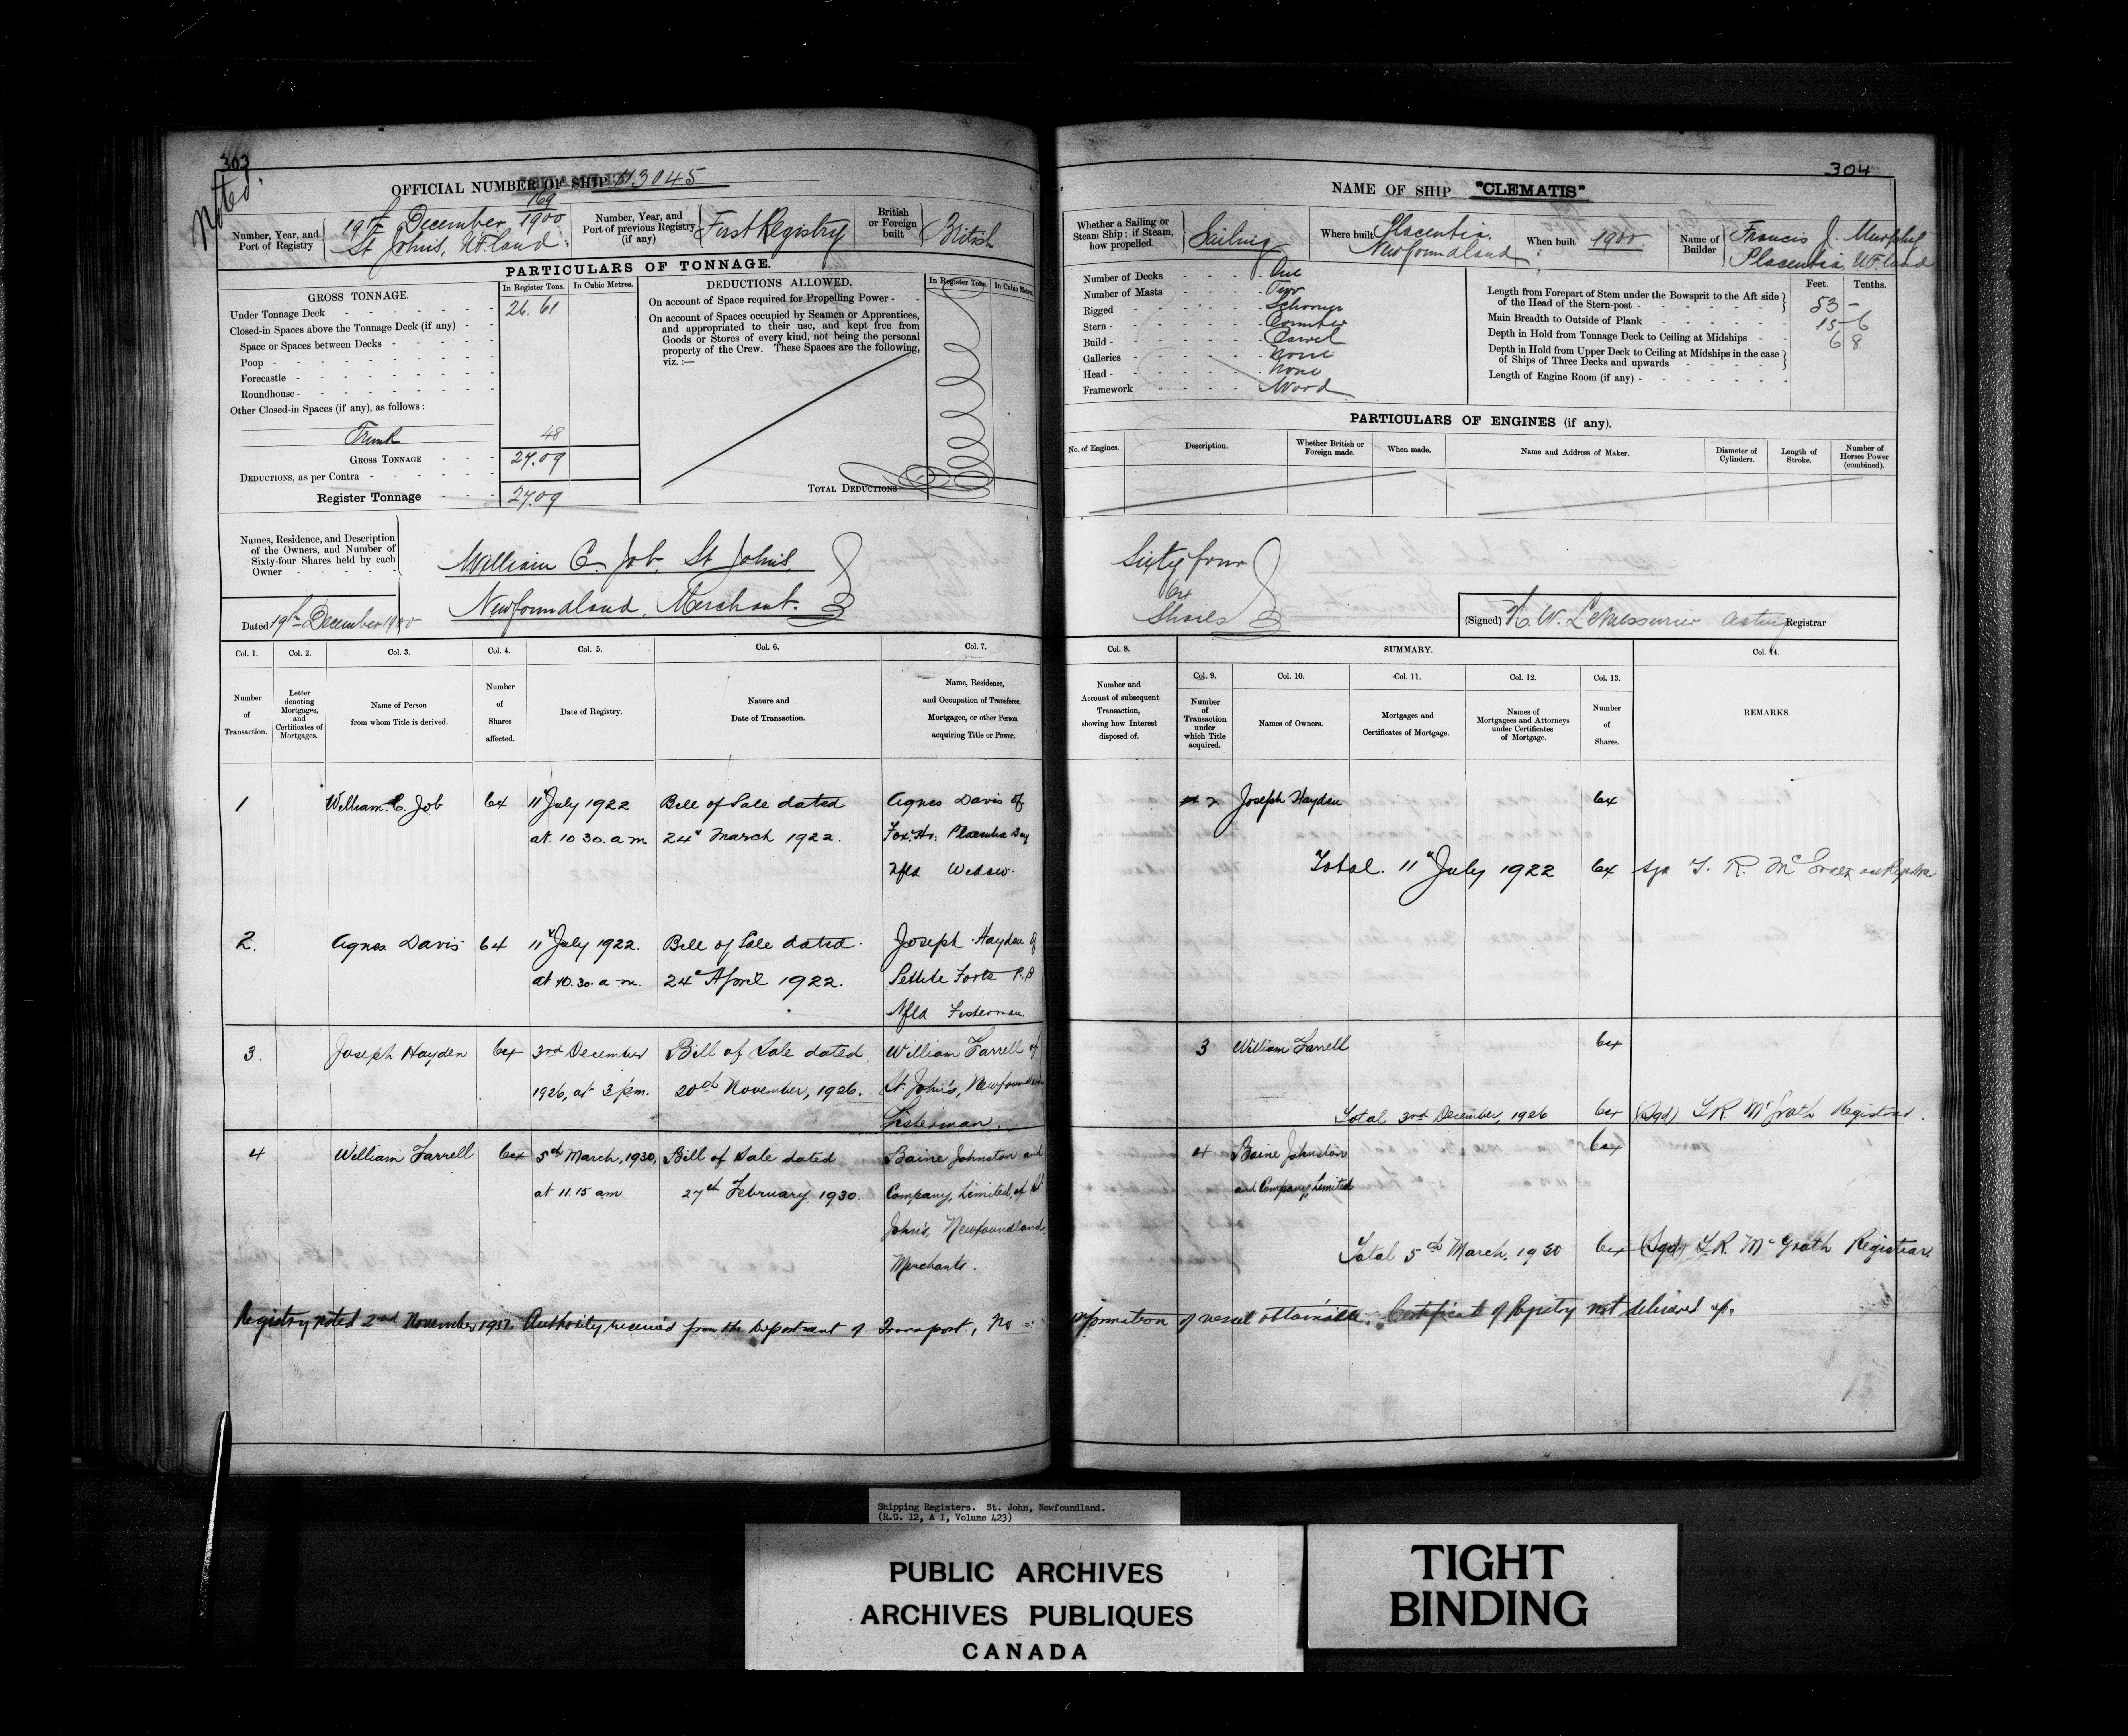 303
Noted.
OFFICIAL NUMBER OF SHIP 113045
Number, Year, and Port of Registry
169/1900
19th December
St John's, N.F.land.
Number, Year, and Port of previous Registry (if any)
First Registry
British or Foreign built
British
PARTICULARS OF TONNAGE.
GROSS TONNAGE.
In Register Tons.
In Cubic Metres.
Under Tonnage Deck 26.61
Closed-in Spaces above the Tonnage Deck (if any)
Space or Spaces between Decks
Poop
Forecastle
Roundhouse
Other Closed-in Spaces (if any), as follows:
Trunk 48
GROSS TONNAGE 27.09
DEDUCTIONS, as per Contra
Register Tonnage 27.09
DEDUCTIONS ALLOWED.
In Register Tons.
In Cubic Metres.
On account of Space required for Propelling Power
On account of Spaces occupied by Seamen or Apprentices,
and appropriated to their use, and kept free from
Goods or Stores of every kind, not being the personal
property of the Crew. These Spaces are the following,
viz.:—
TOTAL DEDUCTIONS
Names, Residence, and Description
of the Owners, and Number of
Sixty-four Shares held by each
Owner
William C. Job, St John's,
Newfoundland, Merchant.
Dated 19th December 1900
Col. 1.
Number of Transaction.
Col. 2.
Letter denoting Mortgages, and Certificates of Mortgages.
Col. 3.
Name of Person from whom Title is derived.
Col. 4.
Number of Shares affected.
Col. 5.
Date of Registry.
Col. 6.
Nature and Date of Transaction.
Col. 7.
Name, Residence, and Occupation of Transferee, Mortgagee, or other Person acquiring Title or Power.
1 William C. Job 64 11th July 1922 Bill of Sale dated Agnes Davis of
at 10 30. a m. 24th March 1922. Fox Hr: Placentia Bay
Nfld Widow.
2. Agnes Davis 64 11th July 1922. Bill of Sale dated Joseph Hayden of
at 10.30. a m. 24th April 1922. Pettite Forte P.B
Nfld Fisherman
3. Joseph Hayden 64 3rd December Bill of Sale dated William Farrell of
1926, at 3 p.m. 20th November, 1926. St. John's, Newfoundland
Fisherman.
4 William Farrell 64 5th March, 1930, Bill of Sale dated Baine Johnston and
at 11.15 am. 27th February, 1930. Company, Limited, of St
John's, Newfoundland
Merchants.
304
NAME OF SHIP "CLEMATIS"
Whether a Sailing or Steam Ship; if Steam, how propelled.
Sailing
Where built
Placentia,
Newfoundland
When built
1900.
Name of Builder
Francis J. Murphy
Placentia, N.F.land
Number of Decks One
Number of Masts Two
Rigged Schooner
Stern Counter
Build Carvel
Galleries None
Head None
Framework Wood
Feet. Tenths.
Length from Forepart of Stem under the Bowsprit to the Aft side
of the Head of the Stern-post 53 -
Main Breadth to Outside of Plank 15 6
Depth in Hold from Tonnage Deck to Ceiling at Midships 6 8
Depth in Hold from Upper Deck to Ceiling at Midships in the case
of Ships of Three Decks and upwards
Length of Engine Room (if any)
PARTICULARS OF ENGINES (if any).
No. of Engines.
Description.
Whether British or Foreign made.
When made.
Name and Address of Maker.
Diameter of Cylinders.
Length of Stroke.
Number of Horses Power (combined).
Sixty four
64
Shares
(Signed) H. W. LeMessurier Acting Registrar
Col. 8.
Number and Account of subsequent Transaction, showing how Interest disposed of.
SUMMARY.
Col. 9.
Number of Transaction under which Title acquired.
Col. 10.
Names of Owners.
Col. 11.
Mortgages and Certificates of Mortgage.
Col. 12.
Names of Mortgagees and Attorneys under Certificates of Mortgage.
Col. 13.
Number of Shares.
Col. 14.
REMARKS.
2 Joseph Hayden 64
Total. 11th July 1922 64 Sgn
3 William Farrell 64
Total 3rd December, 1926 64 (Sgd) McGrath Registrar.
4 Baine Johnston 64
and Company, Limited
Total 5th March, 1930 64 (Sgd) McGrath Registrar
Registry noted 2nd November Authority received from the Department of Transport, No information of vessel obtainable. Certificate of Registry not delivered up.
Shipping Registers. St. John, Newfoundland.
(R.G. 12, A 1, Volume 423)
PUBLIC ARCHIVES
ARCHIVES PUBLIQUES
CANADA
TIGHT
BINDING